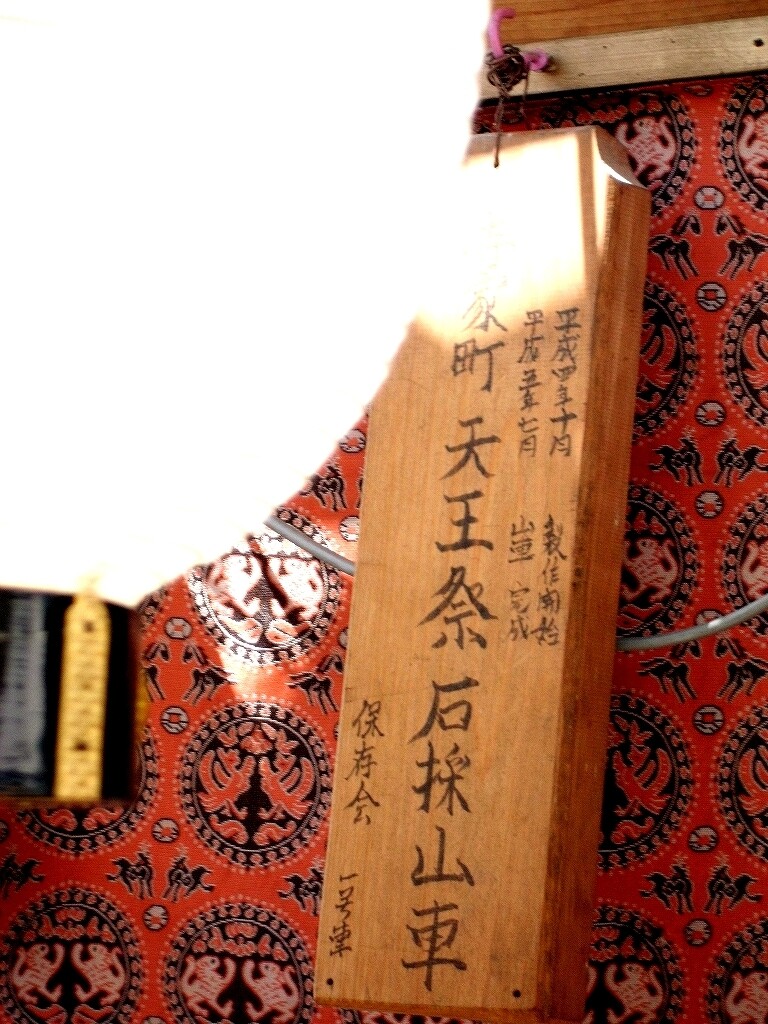 平成四年十月 製作開始
平成五年七月 山車 完成
町 天王祭 石採山車
保存会 一号車